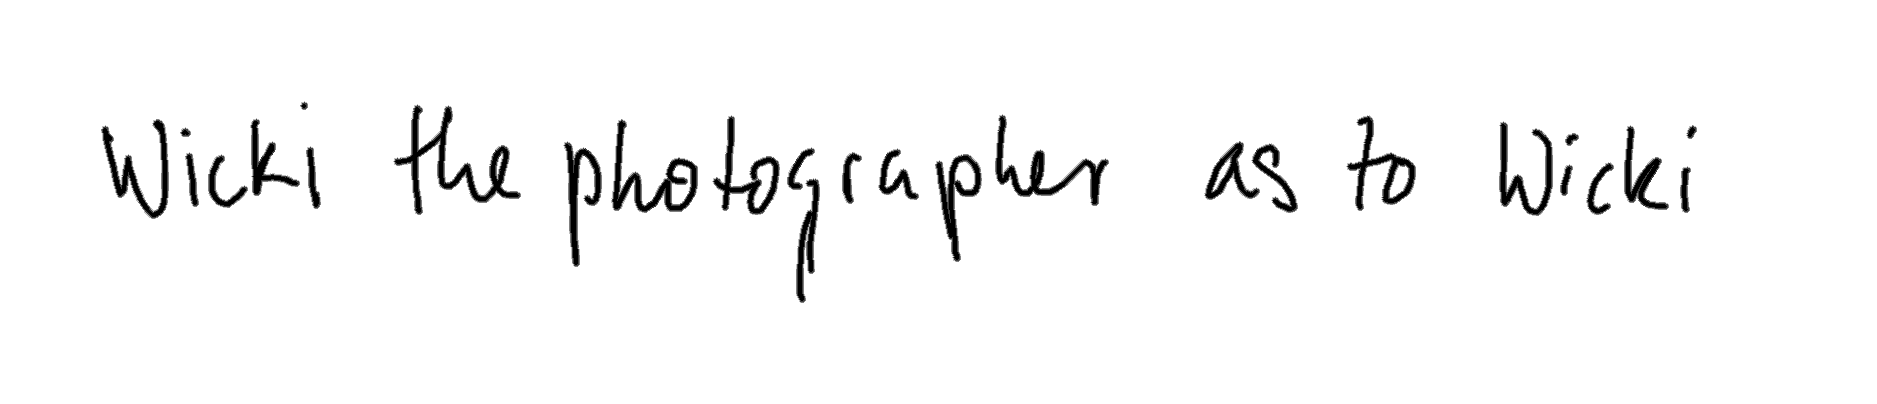 Wicki the photographer as to Wicki